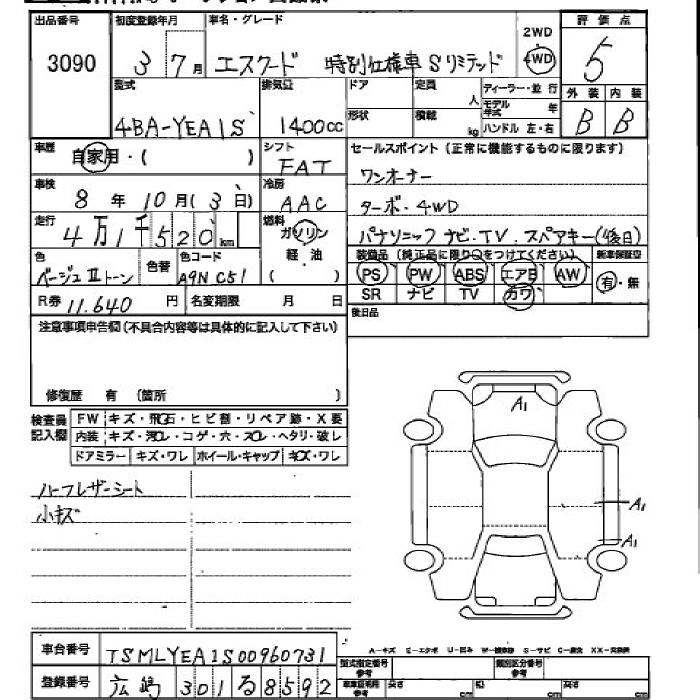 出品番号
3090
初度登録年月
3 7月
車名・グレード
エスクード 特別仕様車 Sリミテッド
2WD
4WD
評価点
5
型式
4BA-YEA1S
排気量
1400cc
ドア
形状
定員
人
積載
kg
ディーラー・並行
モデル年式 年
ハンドル 左・右
外装
B
内装
B
車歴
自家用・( )
シフト
FAT
セールスポイント (正常に機能するものに限ります)
ワンオーナー
ターボ・4WD
パナソニック ナビ・TV・スペアキー(後日)
車検
8年 10月 (3日)
冷房
AAC
走行
4万1千520km
燃料
ガソリン
軽・油
( )
色
ベージュⅡトーン
色替
色コード
A9N C51
装備品 (純正品に限り○をつけてください)
PS PW ABS エアB AW
SR ナビ TV カワ
新車保証書
有・無
R券 11.640円
名変期限 月 日
後日品
注意事項申告欄 (不具合内容等は具体的に記入して下さい)
修復歴 有 (箇所 )
検査員記入欄
FW キズ・飛石・ヒビ割・リペア跡・X要
内装 キズ・汚レ・コゲ・穴・スレ・ヘタリ・破レ
ドアミラー キズ・ワレ ホイール・キャップ キズ・ワレ
ハーフレザーシート
小キズ
A1
A1
A1
車台番号
TSMLYEA1S00960731
登録番号
広島 301 る 8592
A-キズ E-エクボ U-凹み W-補修跡 S-サビ C-腐食 XX-交換済
型式指定番号
参考
類別区分番号
参考
車庫証明用
参考
長さ cm
幅 cm
高さ cm